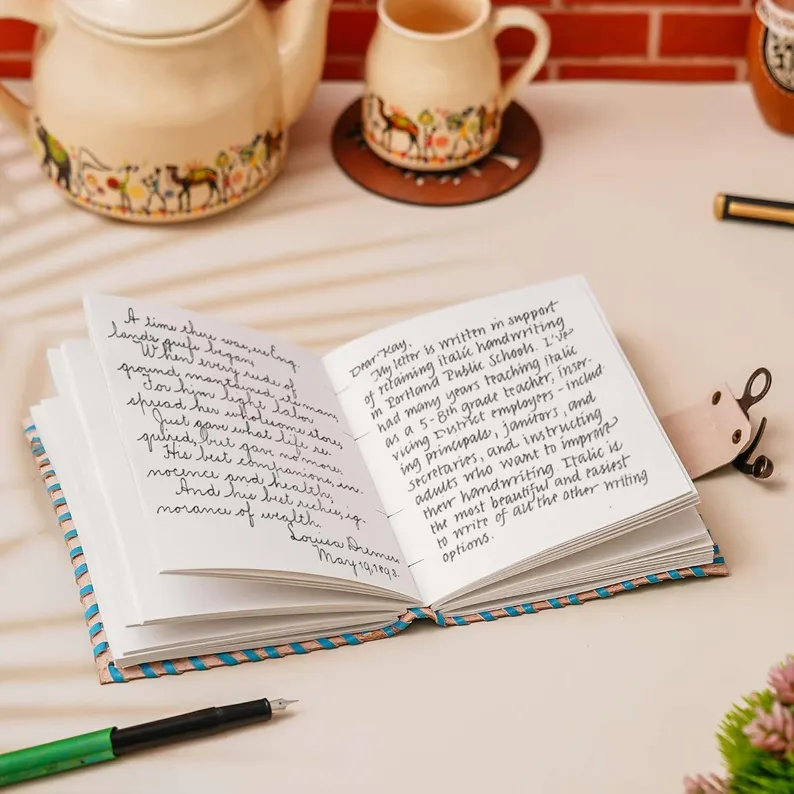 A time there was, ere Eng-
land's griefs began,
When every rude of
ground maintained its man,
For him light labor
spread her wholesome store,
Just gave what life re-
quired, but gave no more.
His best companions, in-
nocence and health,
And his best riches, ig-
norance of wealth.
Louisa
May 19, 1893.
Dear Kay,
My letter is written in support
of retaining italic handwriting
in Portland Public Schools. I've
had many years teaching italic
as a 5-8th grade teacher, inser-
vicing District employers - includ-
ing principals, janitors, and
secretaries, and instructing
adults who want to improve
their handwriting. Italic is
the most beautiful and easiest
to write of all the other writing
options.